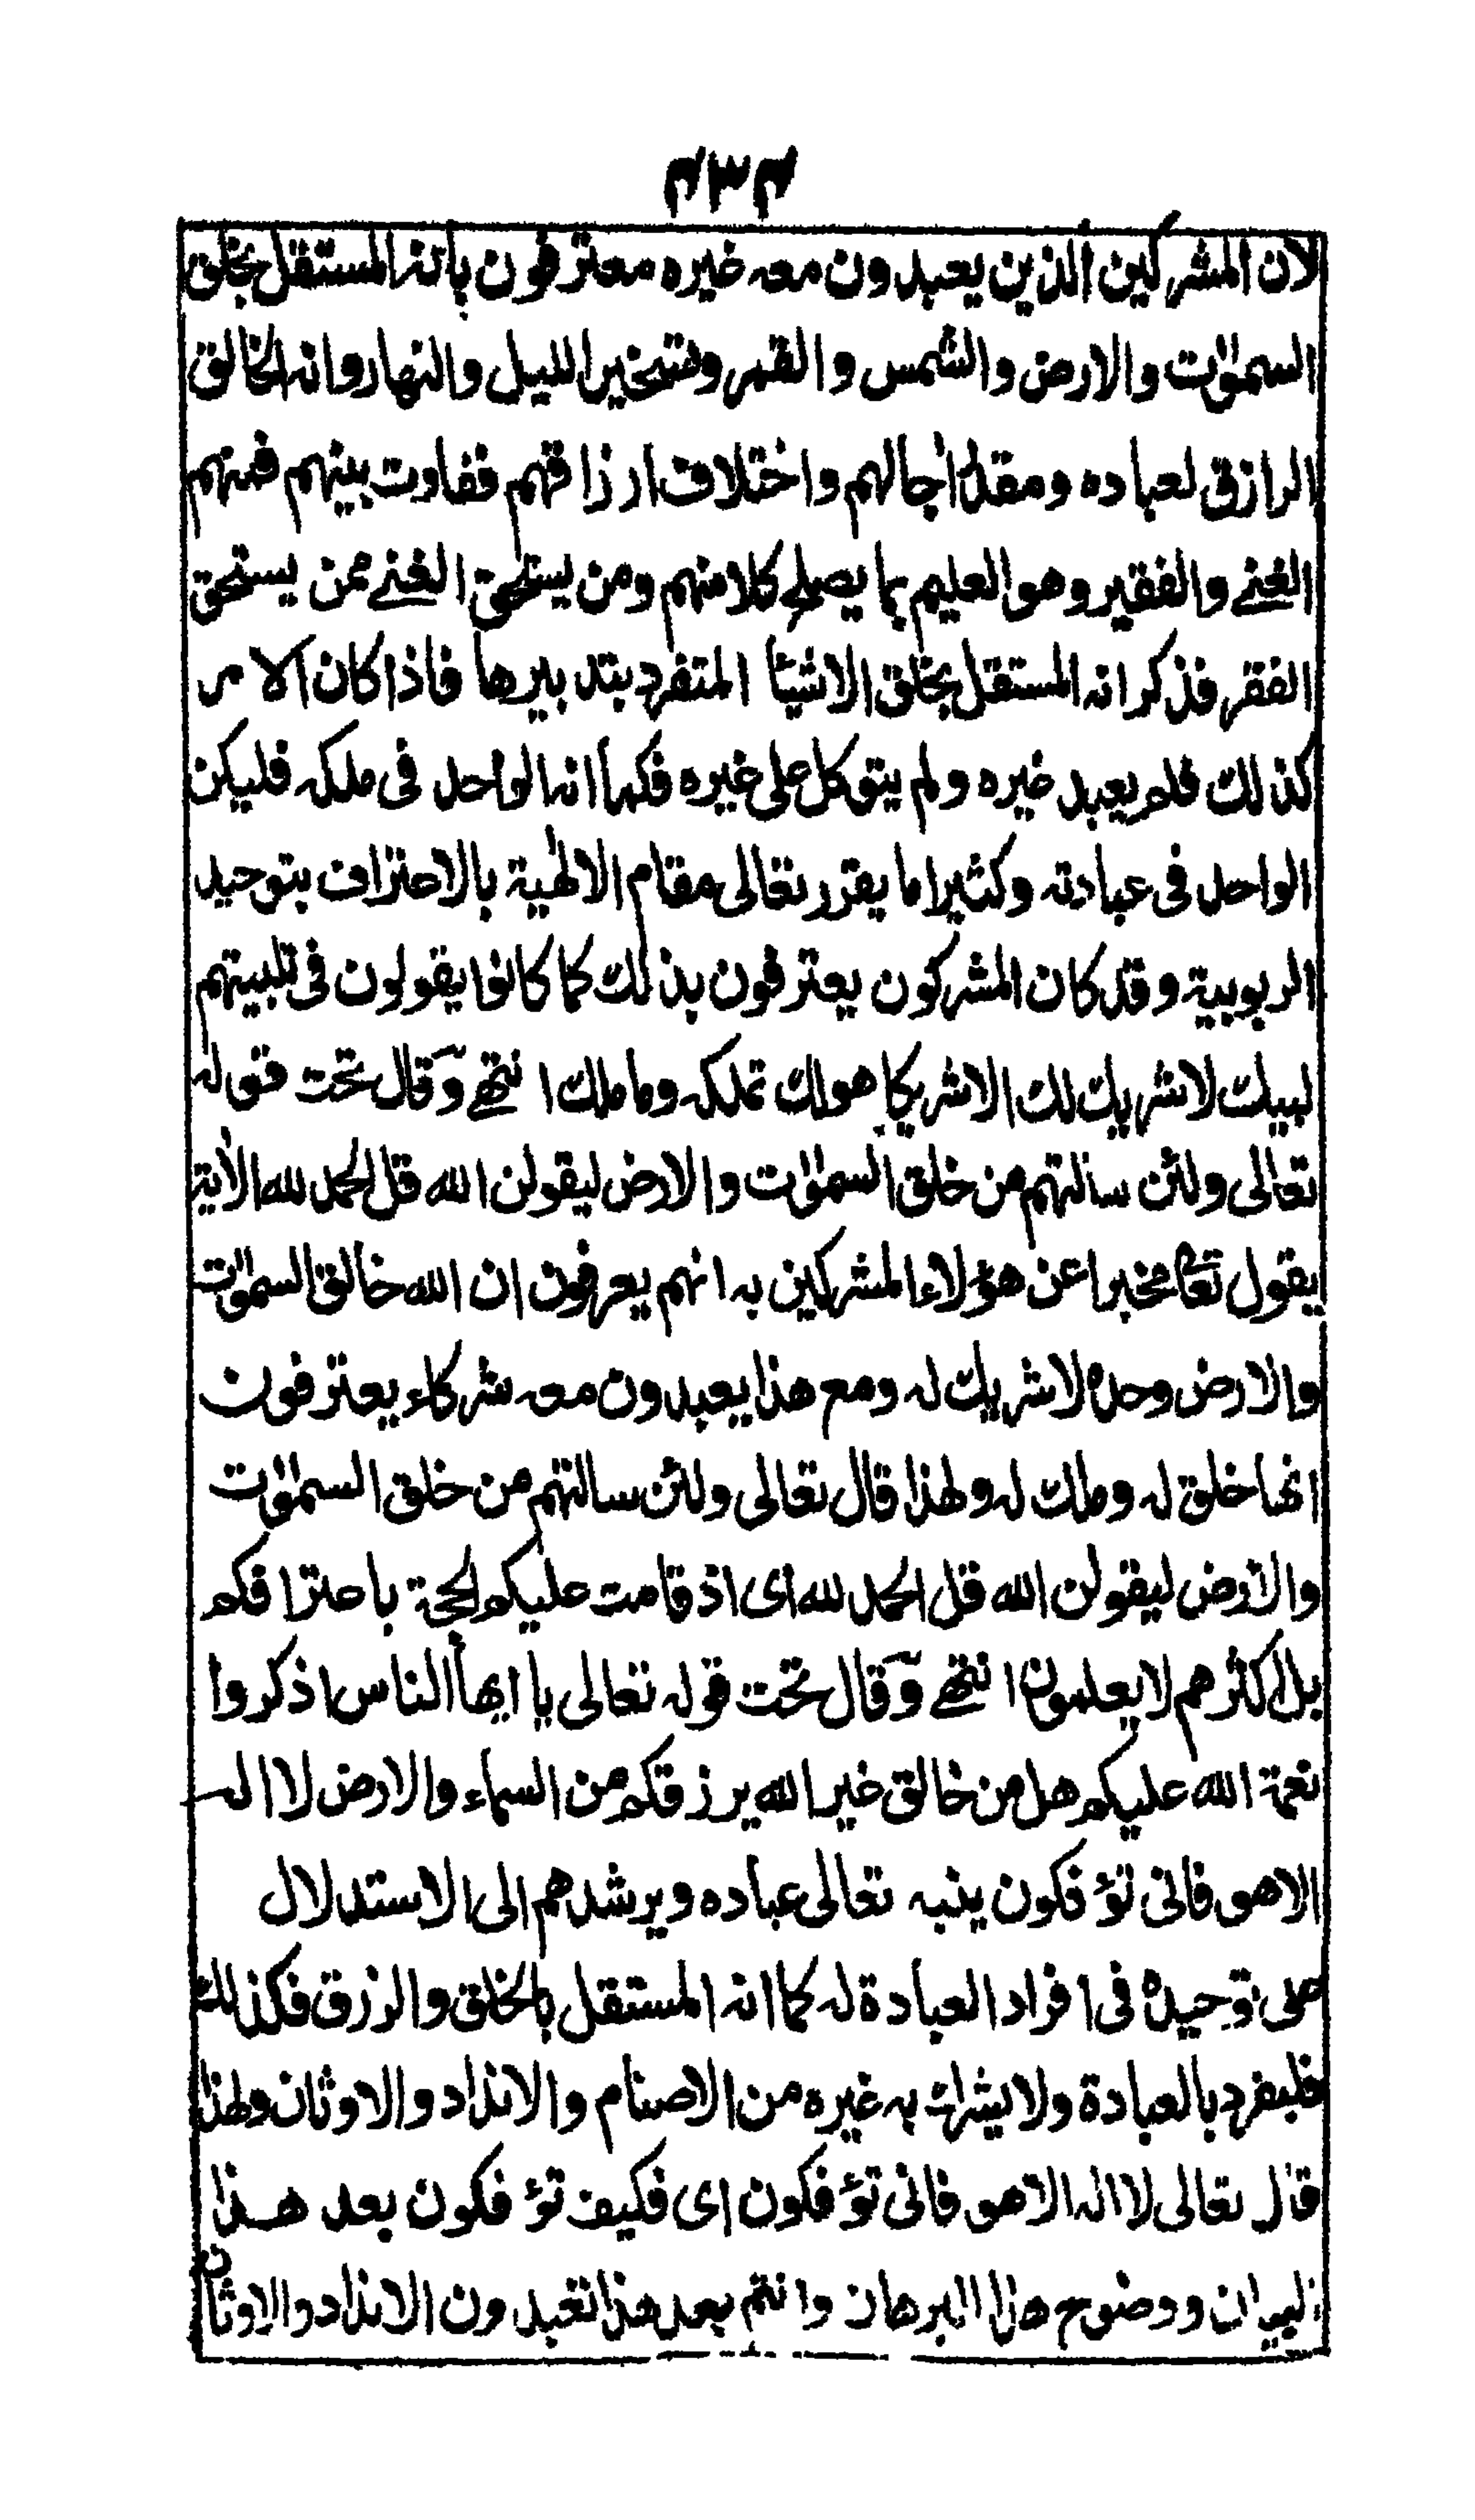 ٤٣٤
لان المشركين الذين يعبدون معه غيره معترفون بانه المستقل بخلق
السموٰت والارض والشمس والقمر وتسخير الليل والنهار وانه الخالق
الرازق لعباده ومقدر اٰجالهم واختلاف ارزاقهم ففاوت بينهم فمنهم
الغنے والفقير وهو العليم بما يصلح كلا منهم ومن يستحق الغنے ممن يستحق
الفقر فذكر انه المستقل بخلق الاشيئا المتفرد بتدبيرها فاذا كان الامر
كذلك فلم يعبد غيره ولم يتوكل على غيره فكما انه الواحد فى ملكه فليكن
الواحد فى عبادته وكثيرا ما يقرر تعالى مقام الالٰهية بالاعتراف بتوحيد
الربوبية وقد كان المشركون يعترفون بذلك كما كانوا يقولون فى تلبيتهم
لبيك لا شريك لك الا شريكا هو لك تملكه وما ملك انتهے وقال تحت قوله
تعالى ولئن سالتهم من خلق السموٰت والارض ليقولن الله قل الحمد لله الاٰية
يقول تعا مخبرا عن هؤلاء المشركين به انهم يعرفون ان الله خالق السموٰت
والارض وحده لا شريك له ومع هذا يعبدون معه شركاء يعترفون
انها خلق له وملك له ولهذا قال تعالى ولئن سالتهم من خلق السموٰت
والارض ليقولن الله قل الحمد لله اى اذ قامت عليكم الحجة باعترافكم
بل اكثرهم لا يعلمون انتهے وقال تحت قوله تعالى يا ايها الناس اذكروا
نعمة الله عليكم هل من خالق غير الله يرزقكم من السماء والارض لا اله
الا هو فانى تؤفكون ينبه تعالى عباده ويرشدهم الى الاستدلال
على توحيده فى افراد العبادة له كما انه المستقل بالخلق والرزق فكذلك
فليفرد بالعبادة ولا يشرك به غيره من الاصنام والانداد والاوثان ولهذا
قال تعالى لا اله الا هو فانى تؤفكون اى فكيف تؤفكون بعد هذا
البيان ووضوح هذا البرهان وانتم بعد هذا تعبدون الانداد والاوثان